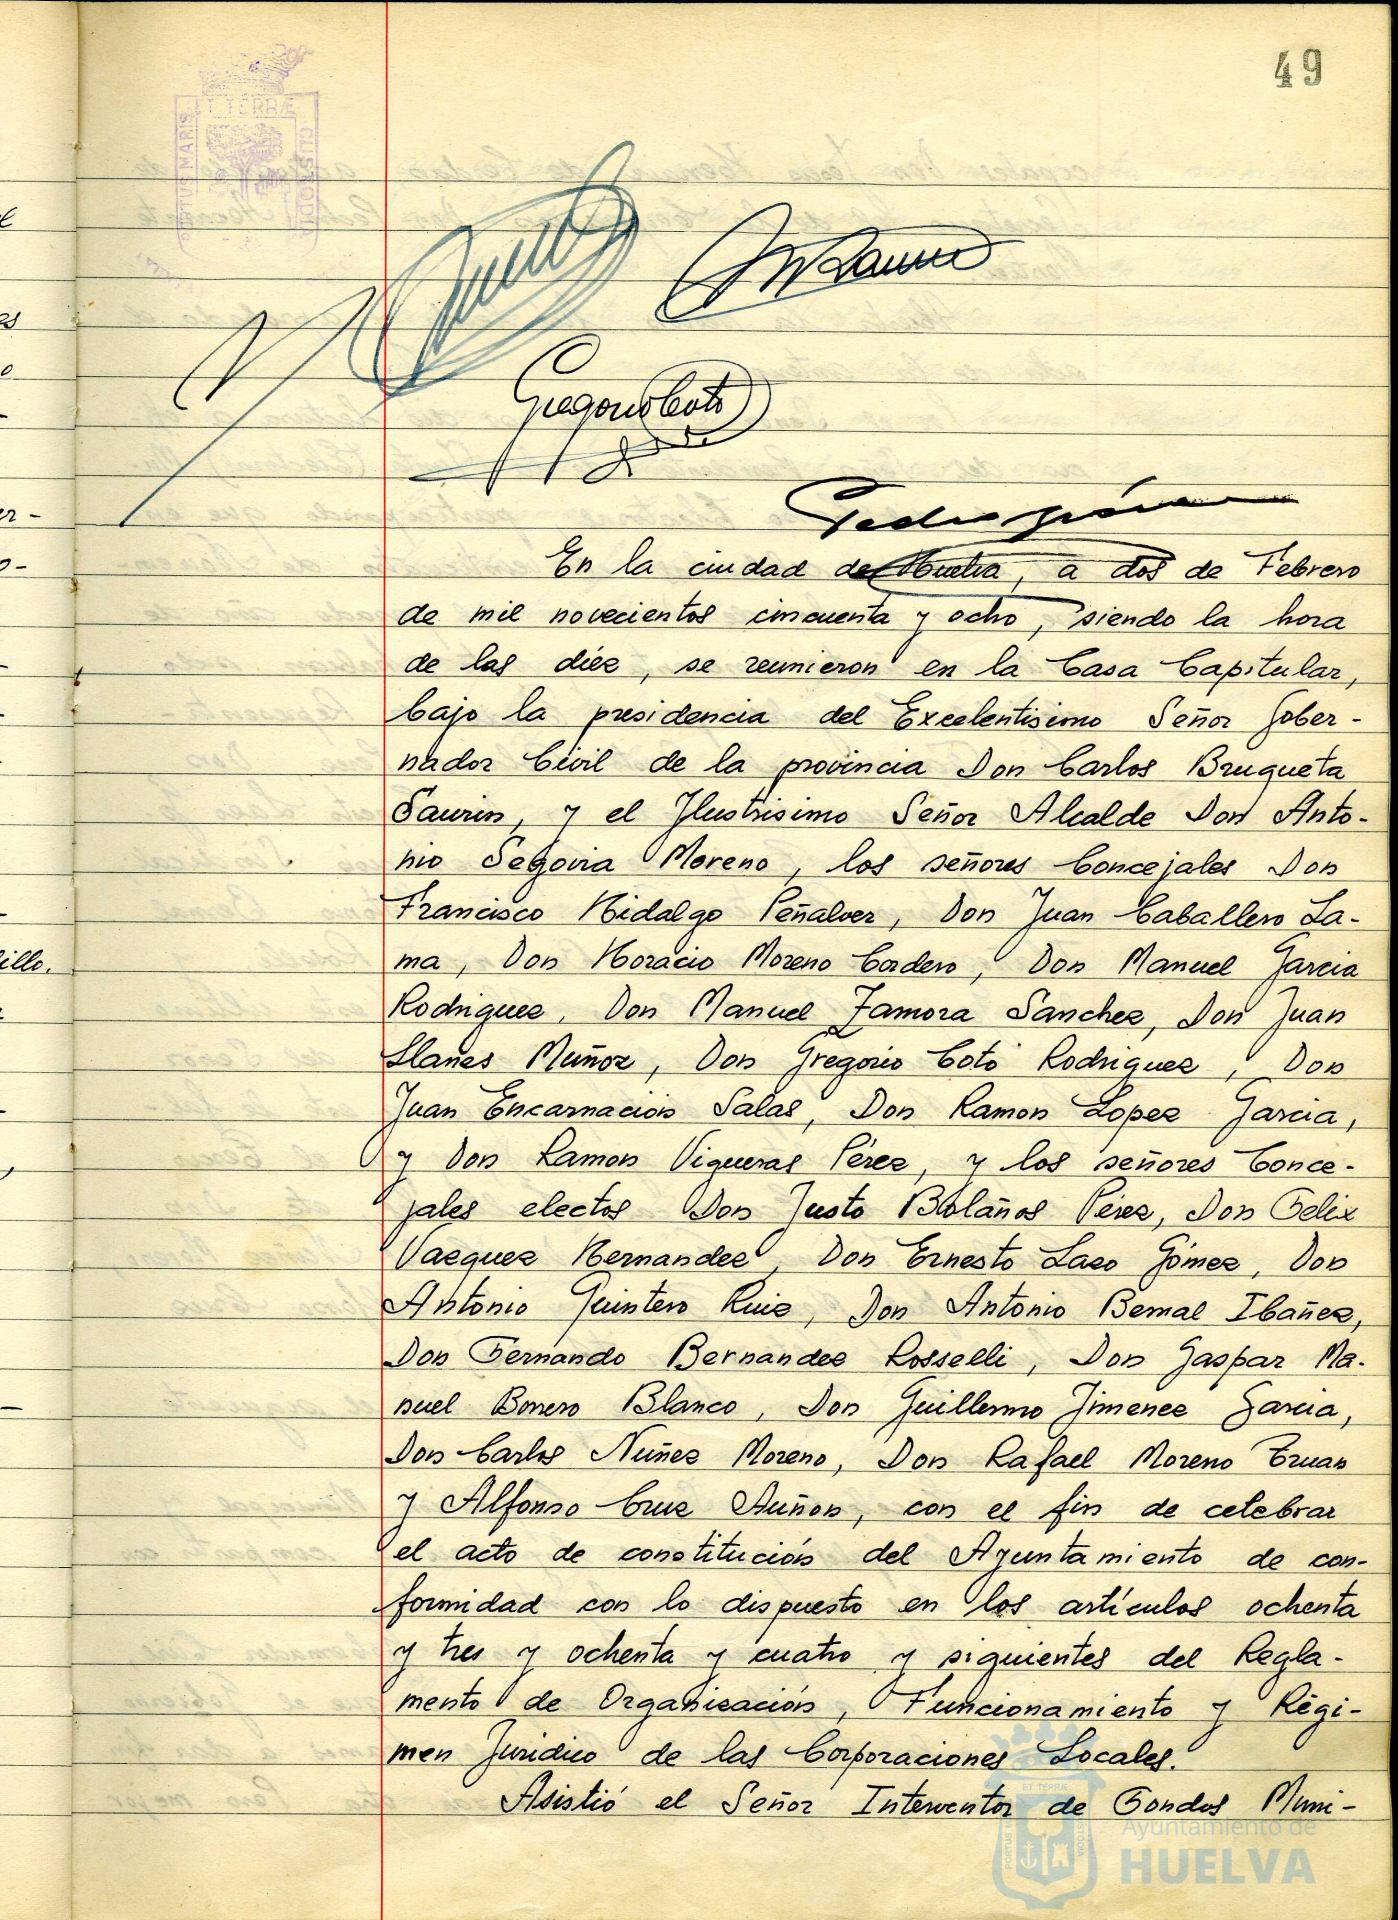 49
ET TERRÆ
PORTUS MARIS
CUSTODIA
Gregorio Coto
En la ciudad de Huelva, a dos de Febrero
de mil novecientos cincuenta y ocho, siendo la hora
de las diéz, se reunieron en la Casa Capitular,
bajo la presidencia del Excelentisimo Señor Gober-
nador Civil de la provincia Don Carlos Brugueta
Saurin, y el Ilustrisimo Señor Alcalde Don Anto-
nio Segovia Moreno, los señores Concejales Don
Francisco Hidalgo Peñalver, Don Juan Caballero La-
ma, Don Horacio Moreno Cordero, Don Manuel Garcia
Rodriguez, Don Manuel Zamora Sanchez, Don Juan
Llanes Muñoz, Don Gregorio Coto Rodriguez, Don
Juan Encarnación Salas, Don Ramon Lopez Garcia,
y Don Ramon Vigueras Pérez, y los señores Conce-
jales electos Don Justo Bolaños Pérez, Don Felix
Vazquez Hernandez, Don Ernesto Lazo Gómez, Don
Antonio Quintero Ruiz, Don Antonio Bernal Ibañez,
Don Fernando Bernandez Rosselli, Don Gaspar Ma-
nuel Borrero Blanco, Don Guillermo Jimenez Garcia,
Don Carlos Nuñez Moreno, Don Rafael Moreno Truan
y Alfonso Cruz Auñon, con el fin de celebrar
el acto de constitución del Ayuntamiento de con-
formidad con lo dispuesto en los artículos ochenta
y tres y ochenta y cuatro y siguientes del Regla-
mento de Organización, Funcionamiento y Régi-
men Juridico de las Corporaciones Locales.
Asistió el Señor Interventor de Fondos Muni-
Ayuntamiento de
HUELVA